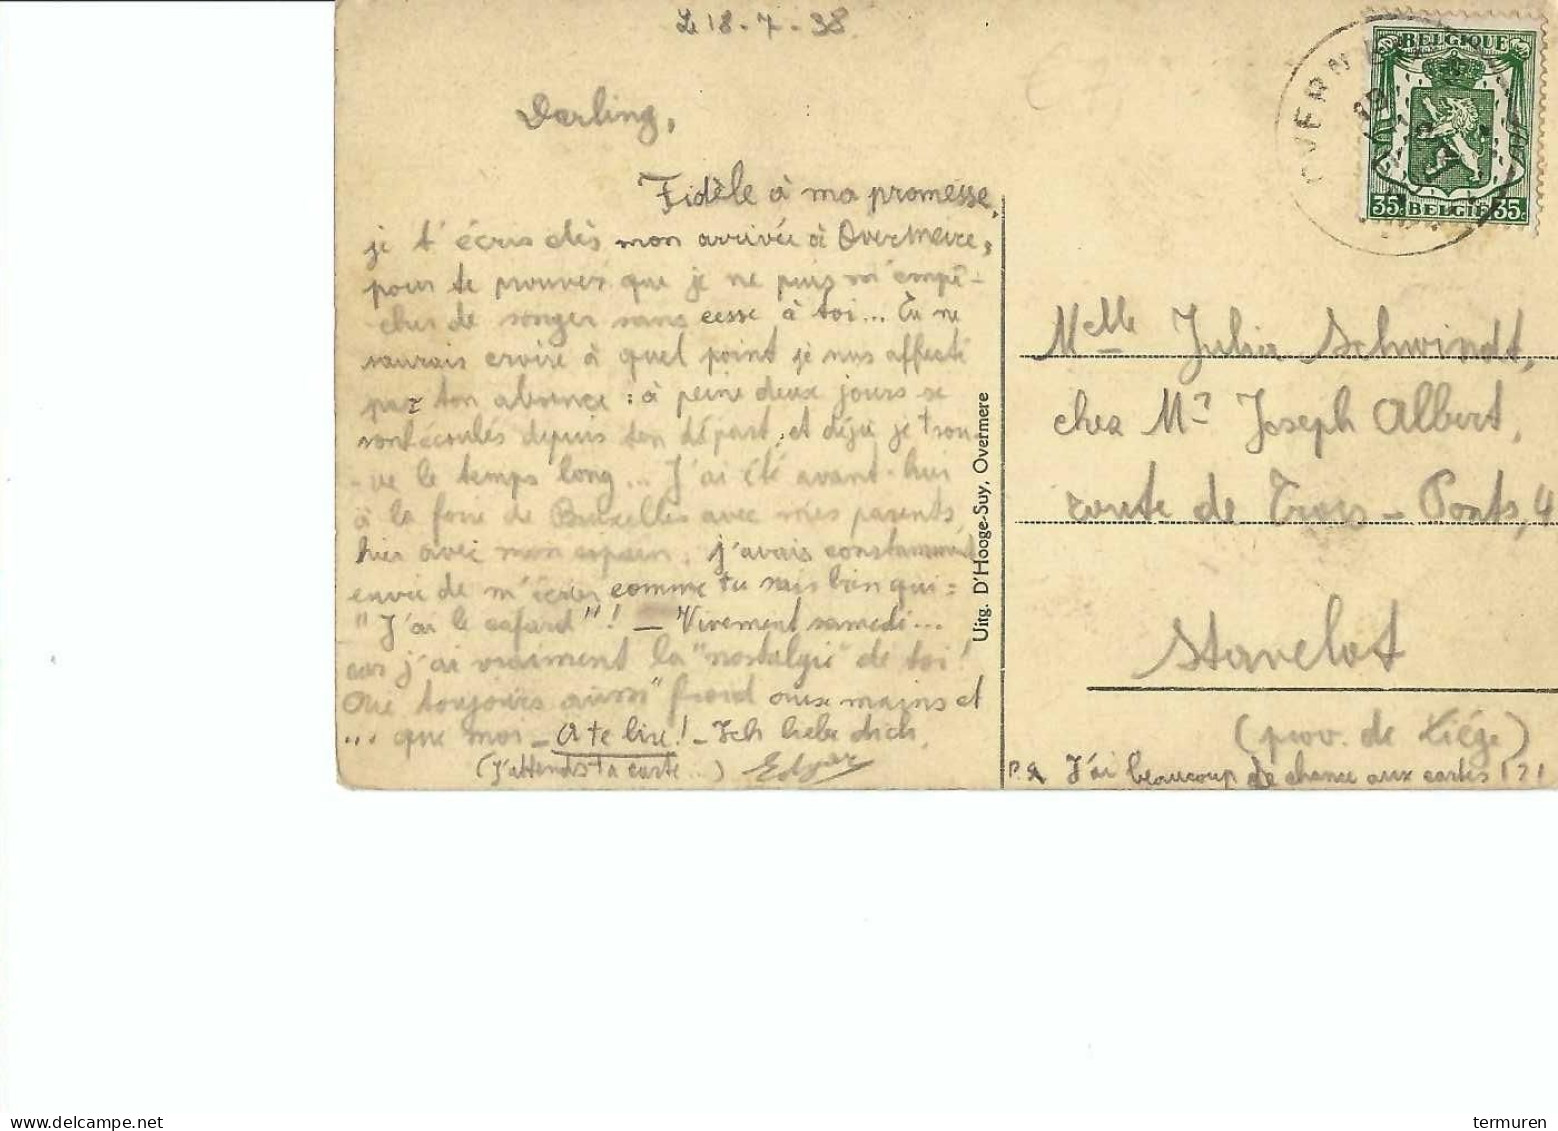 Le 18-7-38
Darling,
Fidèle à ma promesse,
je t'écris dès mon arrivée à Overmeire,
pour te prouver que je ne puis m'empê-
cher de songer sans cesse à toi... Tu ne
saurais croire à quel point je suis affecté
par ton absence : à peine deux jours se
sont écoulés depuis ton départ, et déjà je trou-
-ve le temps long... J'ai été avant-hui
à la foire de Bruxelles avec mes parents,
hier avec mon copain; j'avais constamment
envie de m'écrier comme tu sais bien qui:
"J'ai le cafard"! — Vivement samedi...
car j'ai vraiment la "nostalgie" de toi!
Ai toujours aussi "froid" aux mains et
... que moi - A te lire! - Ich liebe dich,
(J'attends ta carte...) Edgar
Uitg. D'Hooge-Suy, Overmere
OVERM
BELGIQUE
35c BELGIE 35c
Melle Julia Schwindt,
chez Mr Joseph Albert,
route de Trois-Ponts, 4
Stavelot
(prov. de Liége)
P.S. J'ai beaucoup de chance aux cartes!?!
termuren